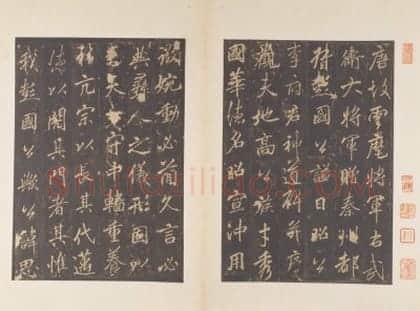 唐故雲麾將軍右武
衛大將軍贈秦州都
督彭國公謚曰昭公
李府君神道碑并序
觀夫地高公族才秀
國華德名昭宣沖用
微婉動必簡久言必
典彝人之儀形國
大守中轄重養
和亢宗以長其代邁
德以闢其門者其惟
我彭國公歟公諱思
Shufaziliao.com